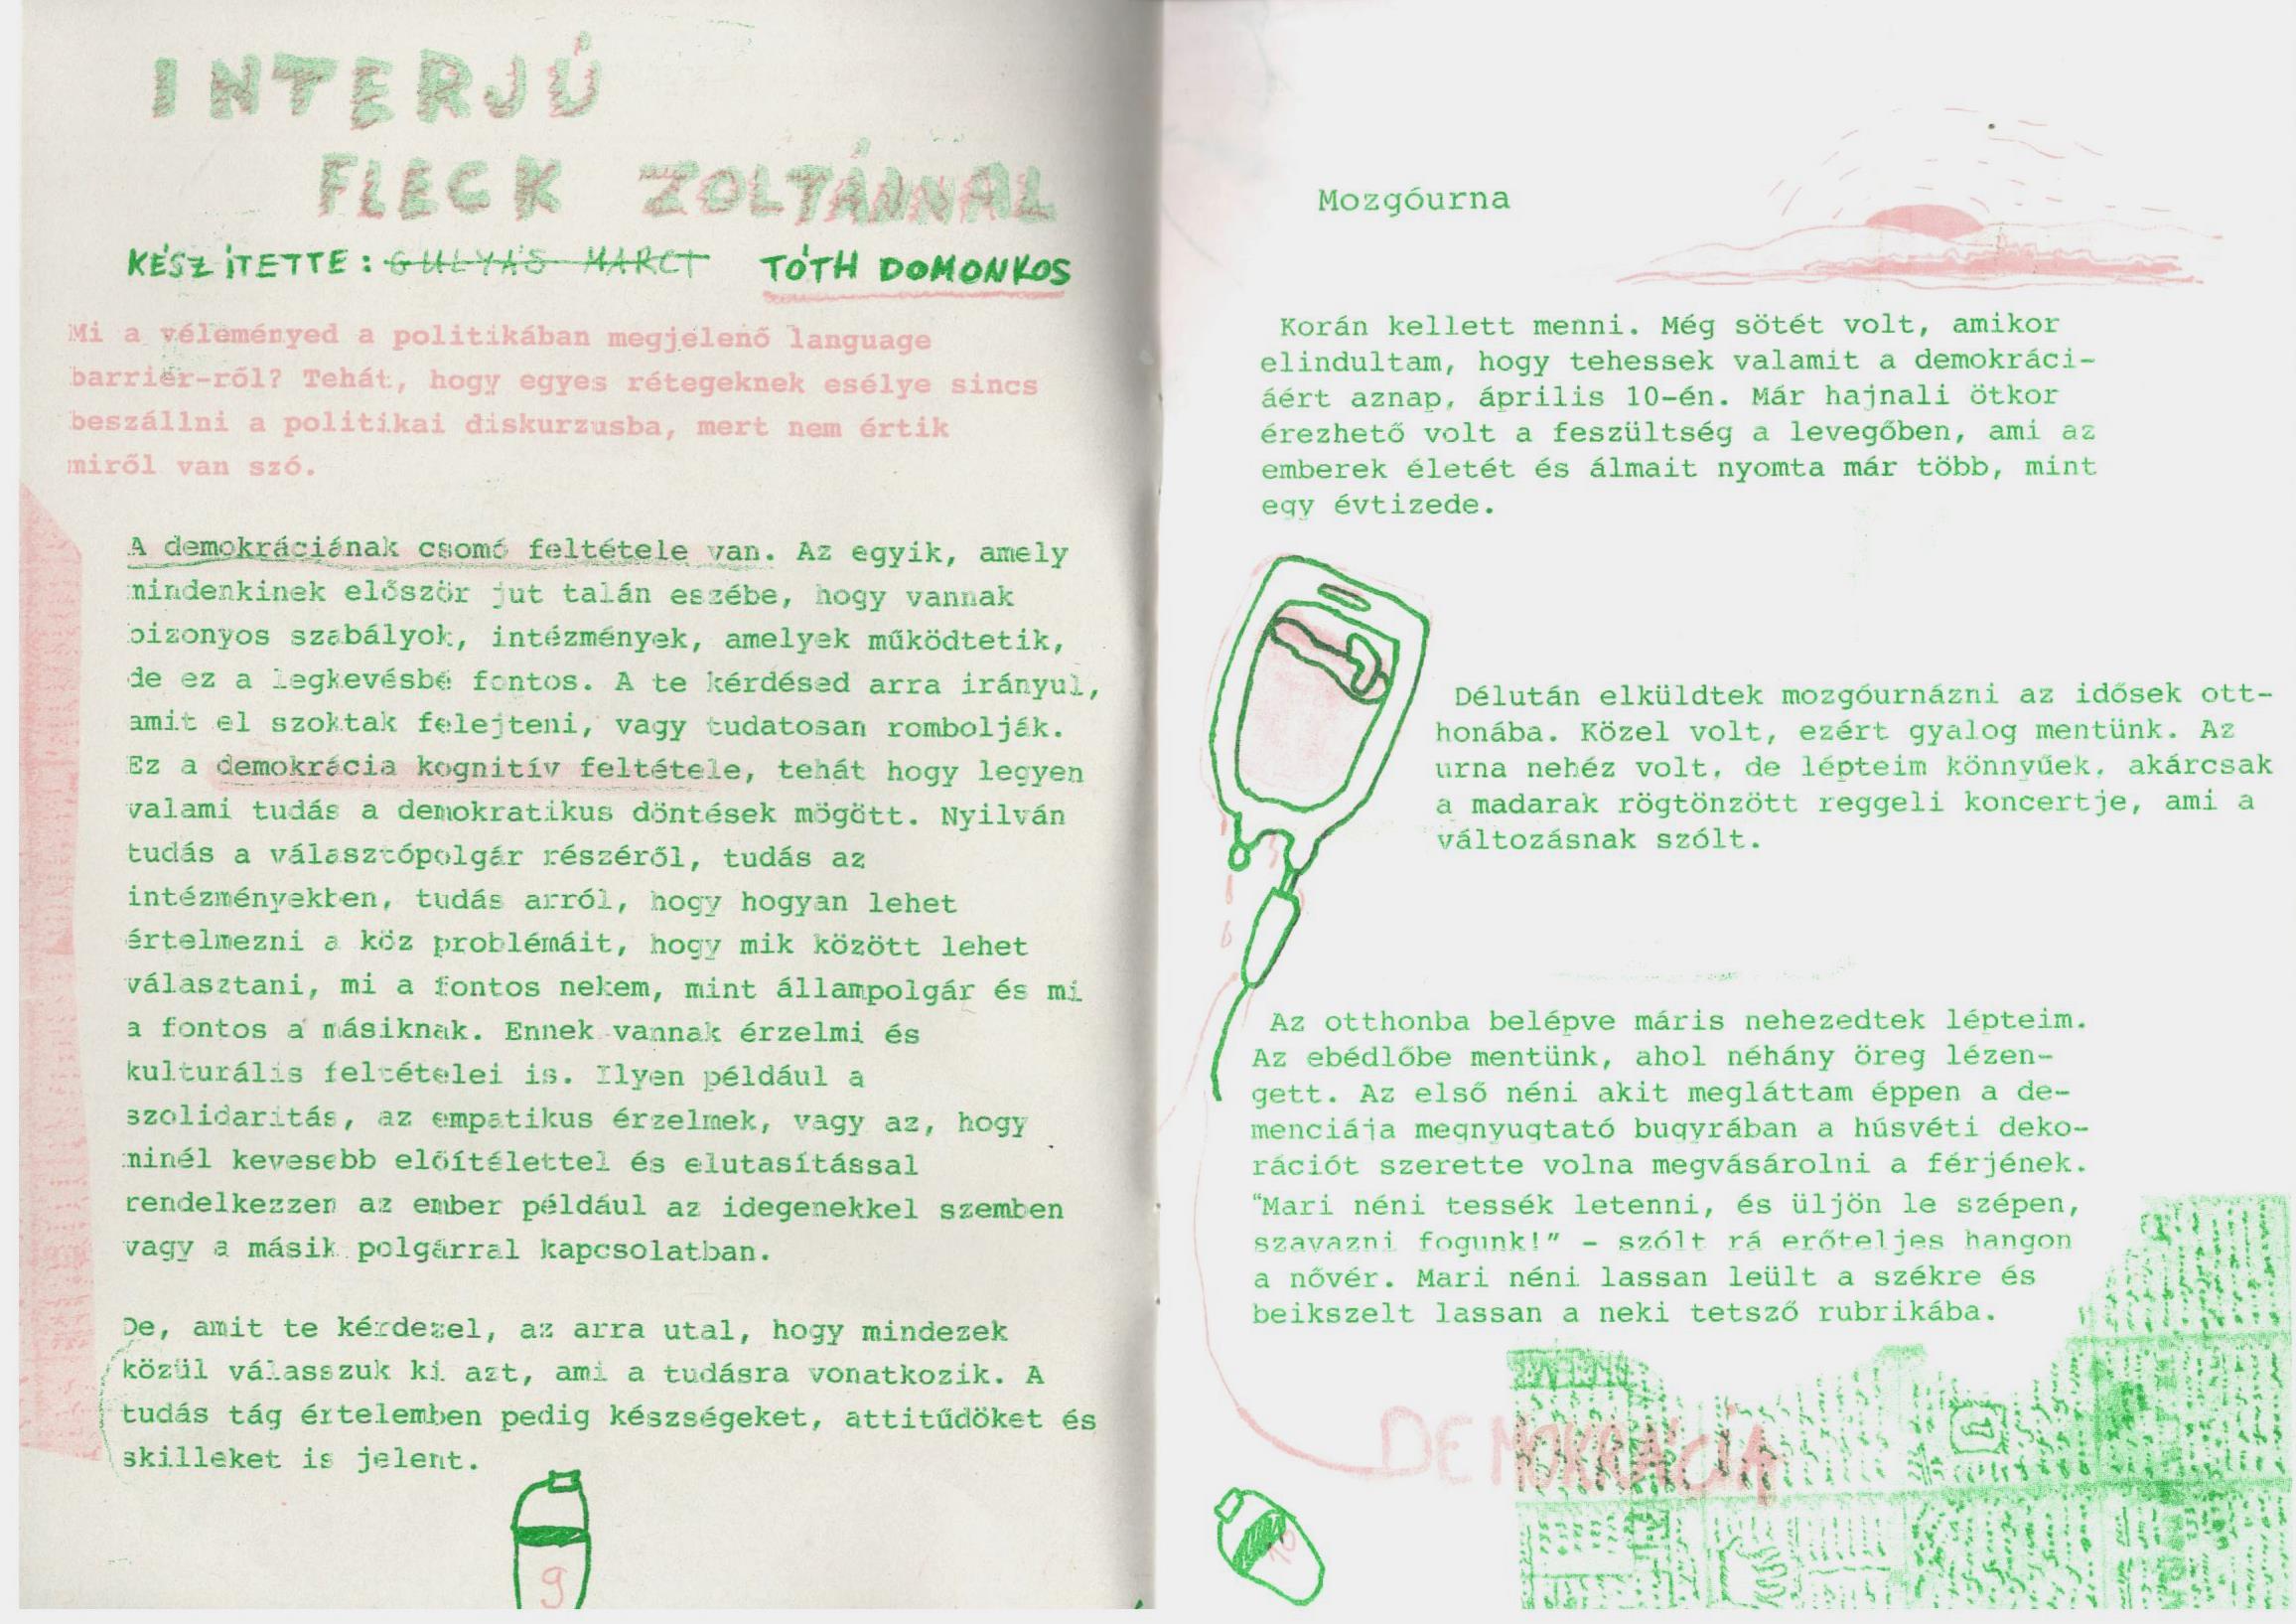 INTERJÚ
FLECK ZOLTÁNNAL
KÉSZÍTETTE: GULYÁS MARCI TÓTH DOMONKOS
Mi a véleményed a politikában megjelenő language
barrier-ről? Tehát, hogy egyes rétegeknek esélye sincs
beszállni a politikai diskurzusba, mert nem értik
miről van szó.
A demokráciának csomó feltétele van. Az egyik, amely
mindenkinek először jut talán eszébe, hogy vannak
bizonyos szabályok, intézmények, amelyek működtetik,
de ez a legkevésbé fontos. A te kérdésed arra irányul,
amit el szoktak felejteni, vagy tudatosan rombolják.
Ez a demokrácia kognitív feltétele, tehát hogy legyen
valami tudás a demokratikus döntések mögött. Nyilván
tudás a választópolgár részéről, tudás az
intézményekben, tudás arról, hogy hogyan lehet
értelmezni a köz problémáit, hogy mik között lehet
választani, mi a fontos nekem, mint állampolgár és mi
a fontos a másiknak. Ennek vannak érzelmi és
kulturális feltételei is. Ilyen például a
szolidaritás, az empatikus érzelmek, vagy az, hogy
minél kevesebb előítélettel és elutasítással
rendelkezzen az ember például az idegenekkel szemben
vagy a másik polgárral kapcsolatban.
De, amit te kérdezel, az arra utal, hogy mindezek
közül válasszuk ki azt, ami a tudásra vonatkozik. A
tudás tág értelemben pedig készségeket, attitűdöket és
skilleket is jelent.
9
Mozgóurna
Korán kellett menni. Még sötét volt, amikor
elindultam, hogy tehessek valamit a demokráci-
áért aznap, április 10-én. Már hajnali ötkor
érezhető volt a feszültség a levegőben, ami az
emberek életét és álmait nyomta már több, mint
egy évtizede.
Délután elküldtek mozgóurnázni az idősek ott-
honába. Közel volt, ezért gyalog mentünk. Az
urna nehéz volt, de lépteim könnyűek, akárcsak
a madarak rögtönzött reggeli koncertje, ami a
változásnak szólt.
Az otthonba belépve máris nehezedtek lépteim.
Az ebédlőbe mentünk, ahol néhány öreg lézen-
gett. Az első néni akit megláttam éppen a de-
menciája megnyugtató bugyrában a húsvéti deko-
rációt szerette volna megvásárolni a férjének.
“Mari néni tessék letenni, és üljön le szépen,
szavazni fogunk!” - szólt rá erőteljes hangon
a nővér. Mari néni lassan leült a székre és
beikszelt lassan a neki tetsző rubrikába.
DEMOKRÁCIA
10